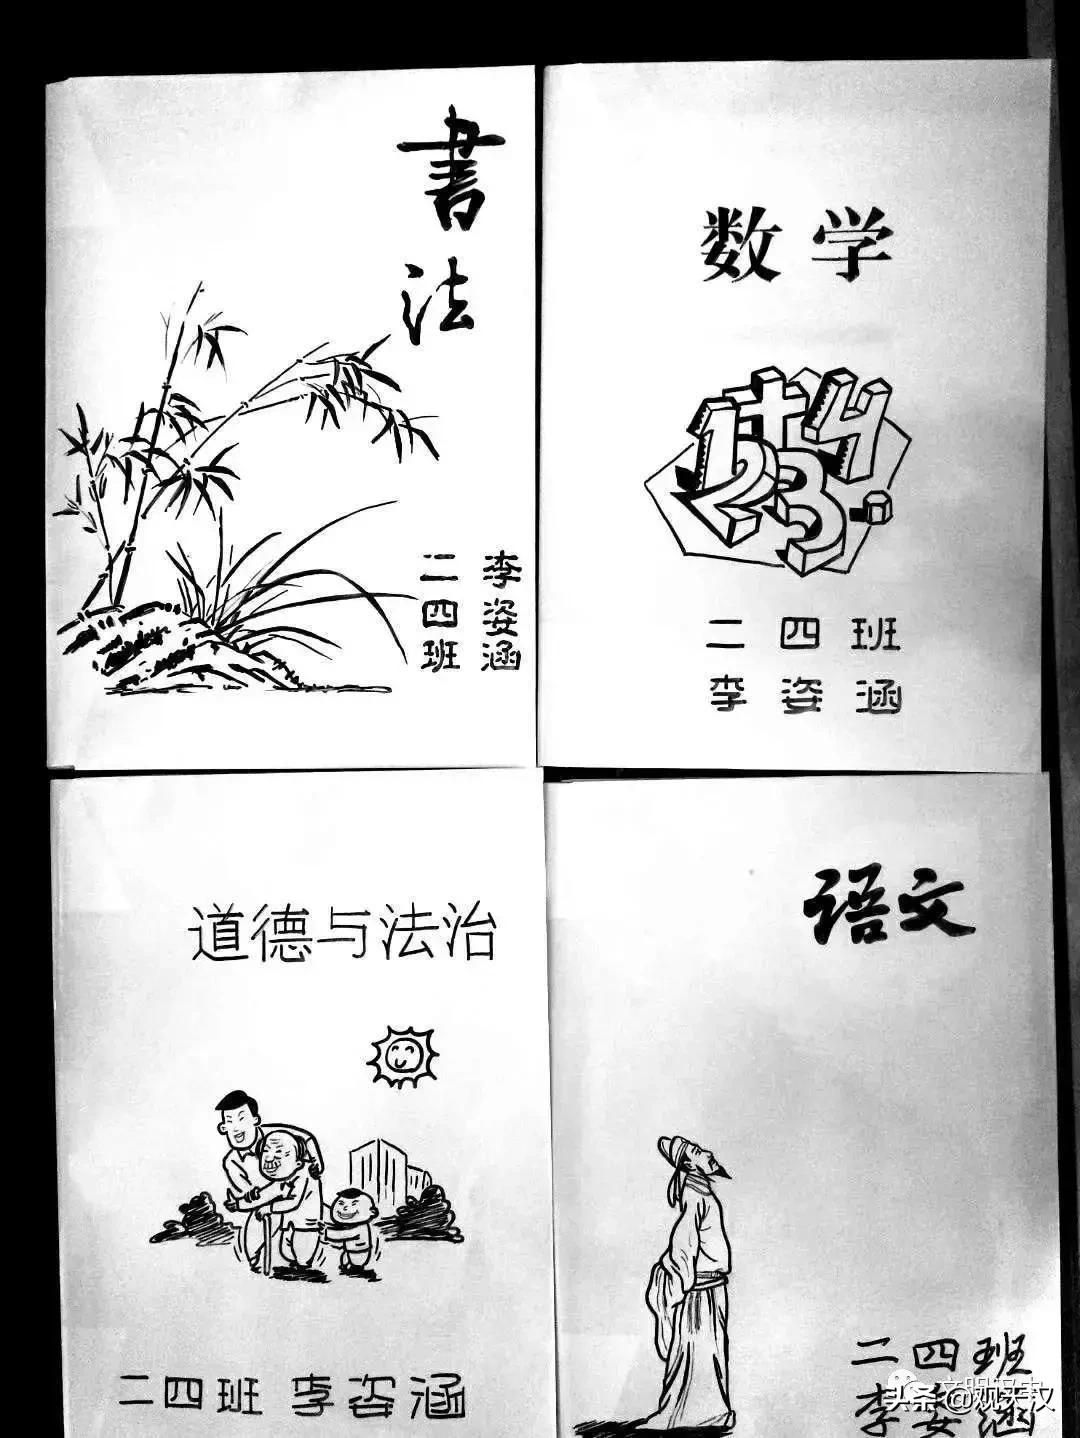 書法
李姿涵
二四班
数学
1+4
23
二四班
李姿涵
道德与法治
二四班 李姿涵
语文
二四班
李姿涵
头条@观天汉